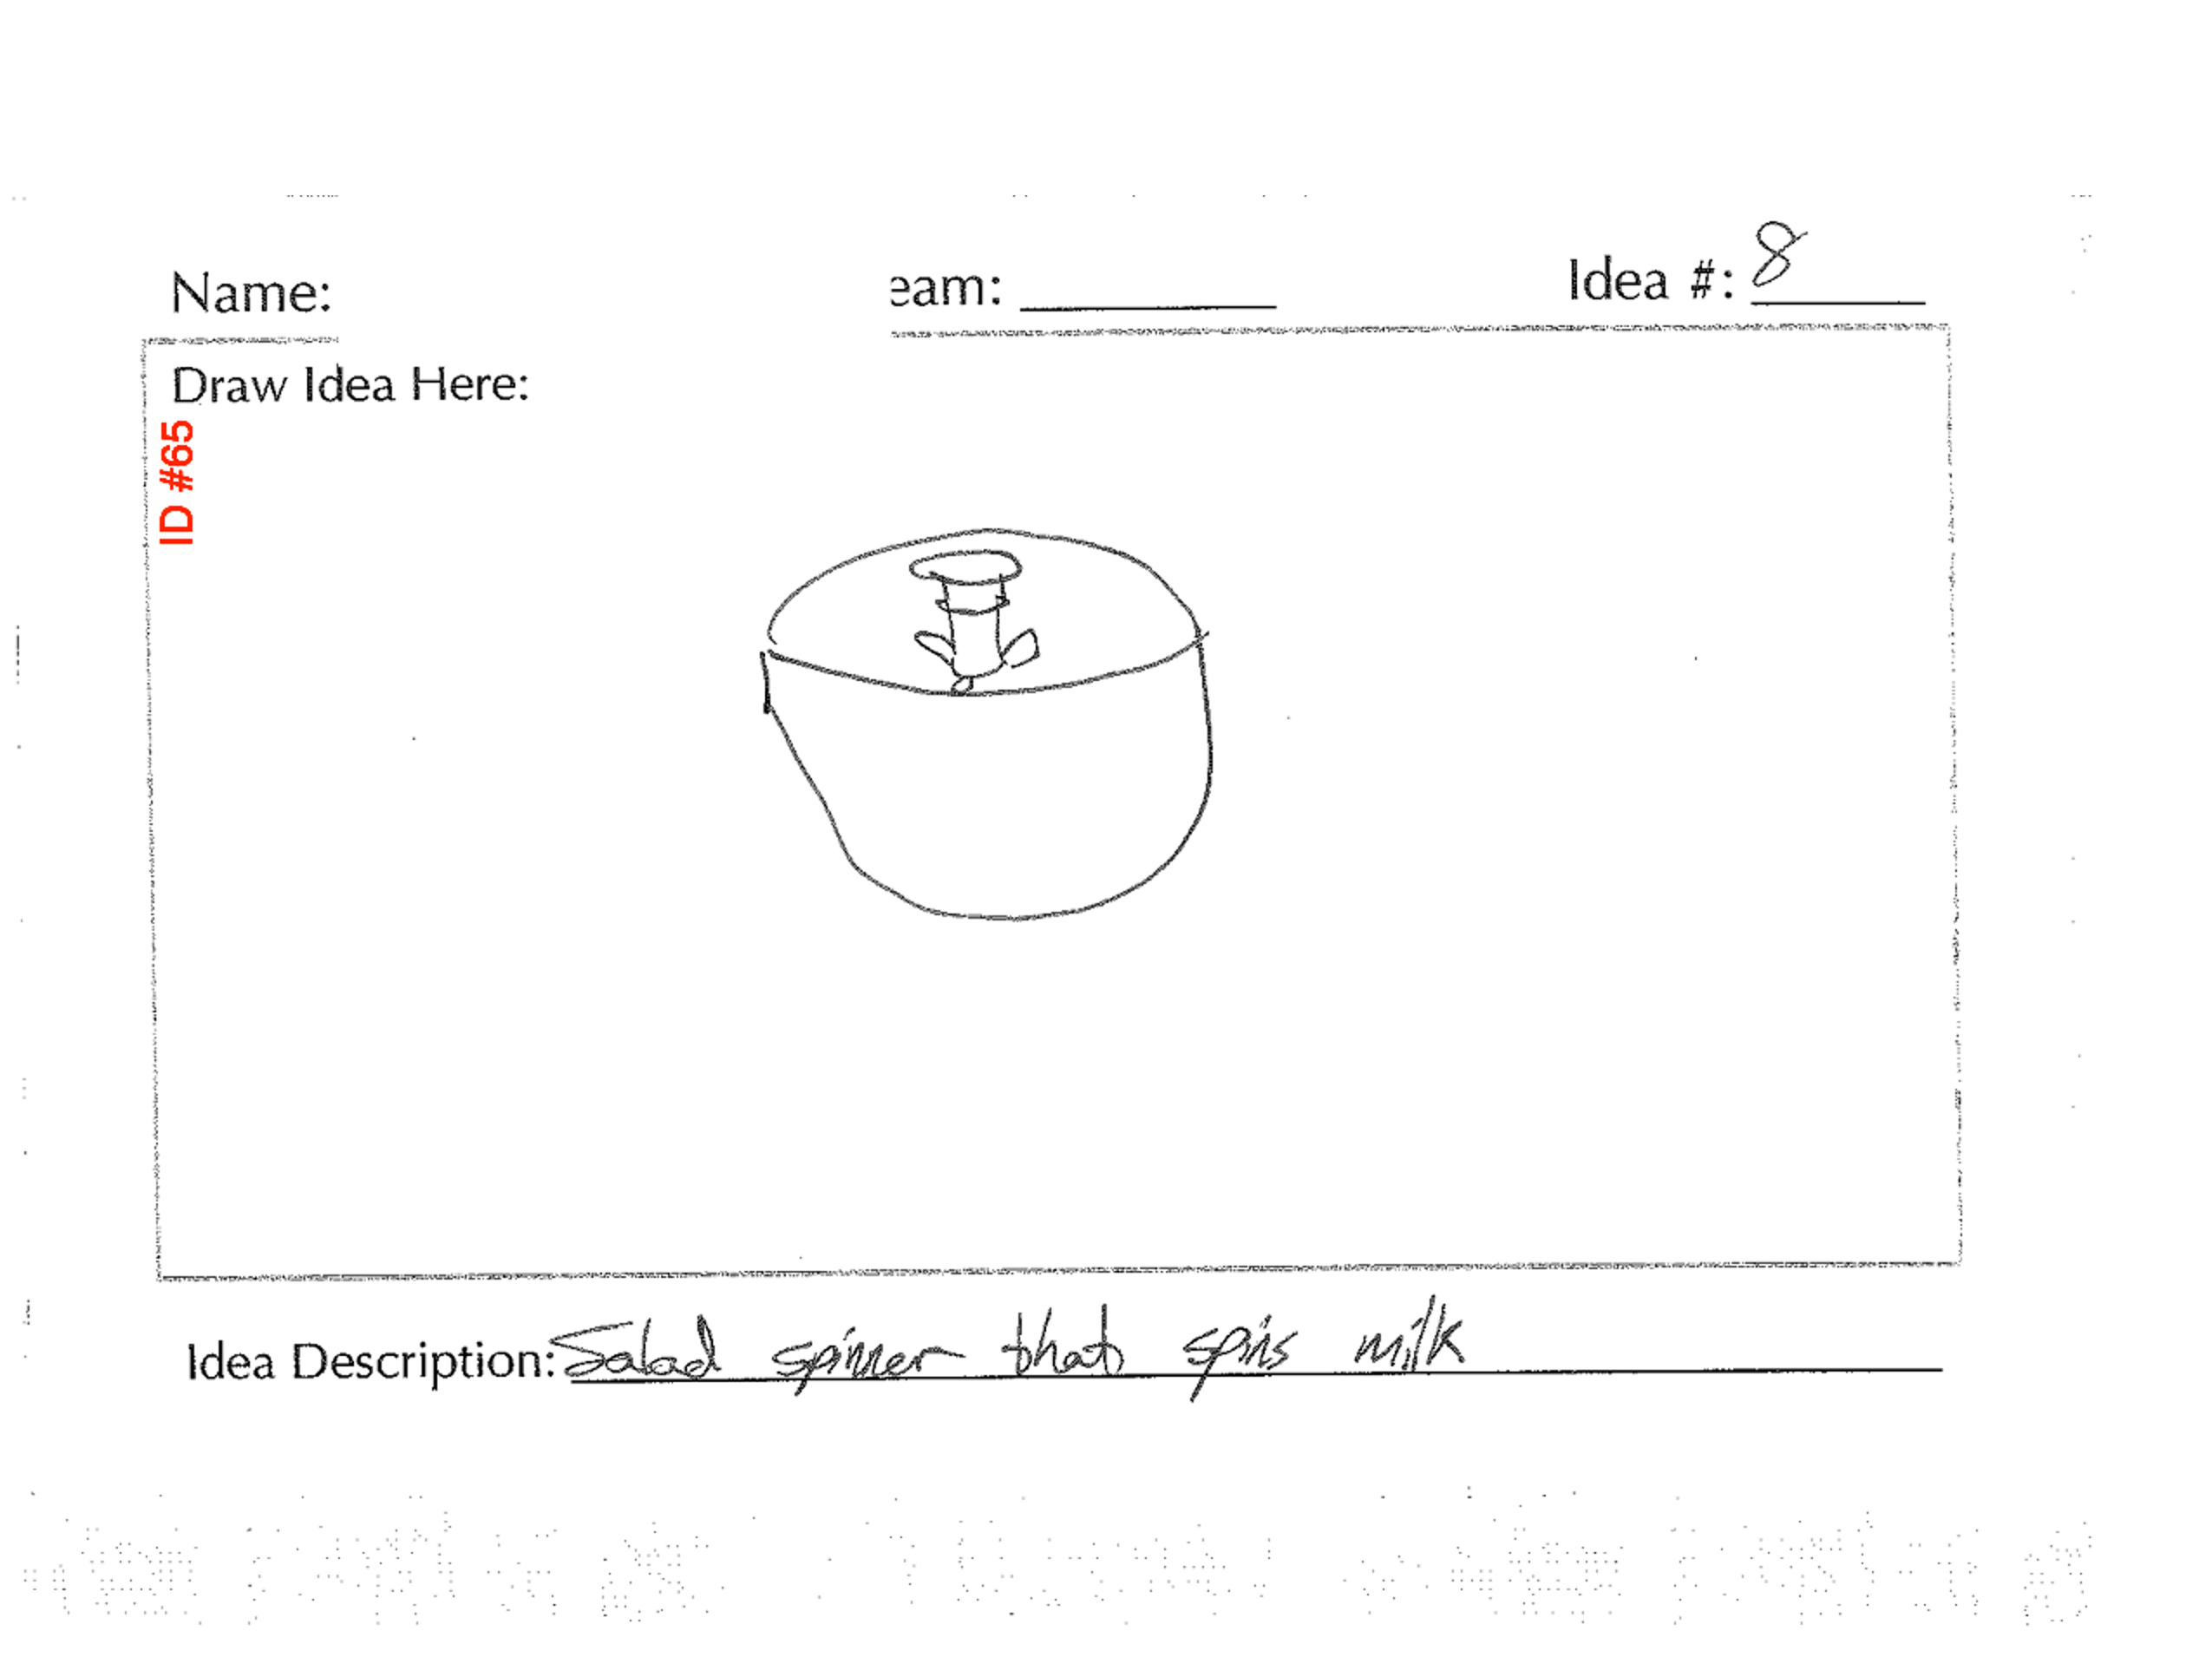 Name: eam: Idea #: 8
Draw Idea Here:
ID #65
Idea Description: Salad spinner that spins milk